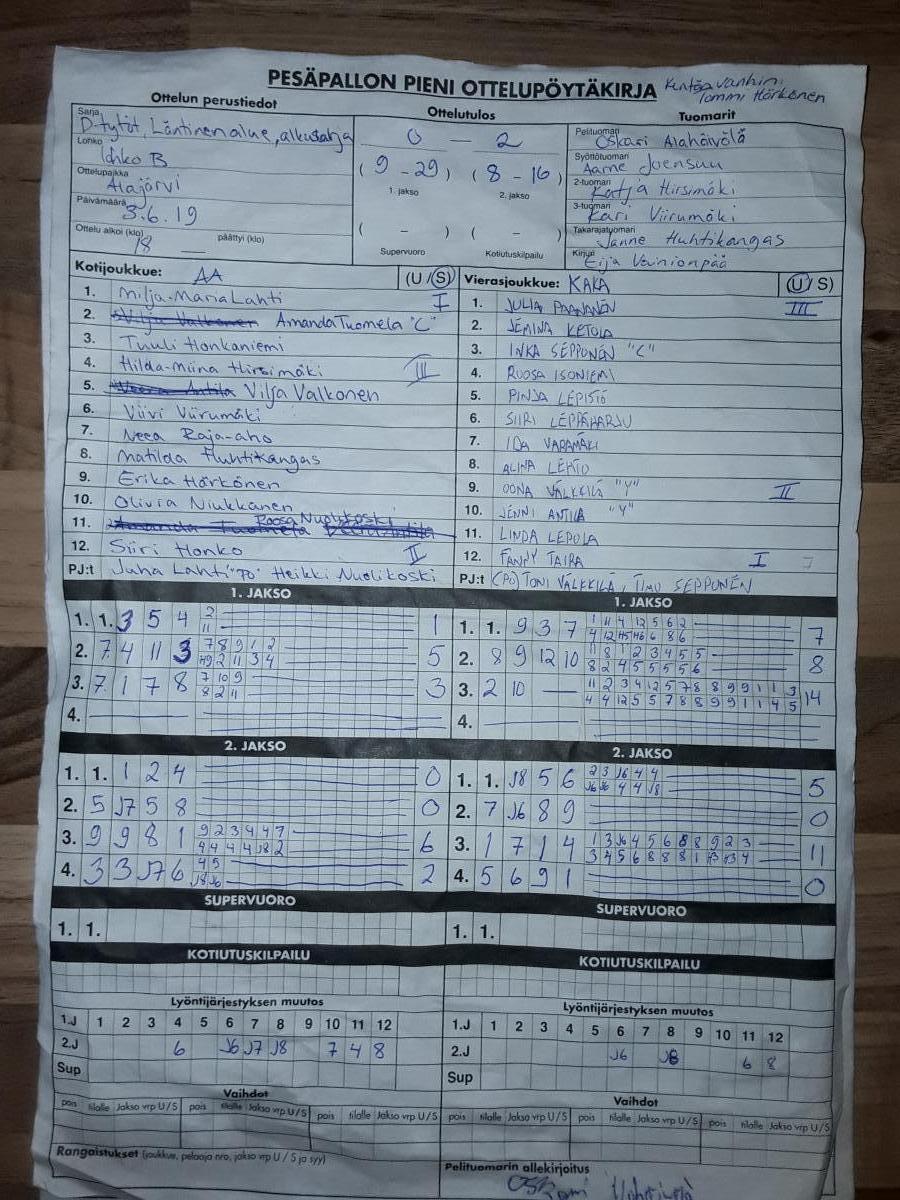 PESÄPALLON PIENI OTTELUPÖYTÄKIRJA
Tommi Härkönen
Ottelun perustiedot
Ottelutulos
Tuomarit
Sarja
D-tytöt, Läntinen alue, alkusarja
Lohko
lohko B
Ottelupaikka
Alajärvi
Päivämäärä
3.6.19
Ottelu alkoi (klo) 18 päättyi (klo)
0 – 2
( 9 - 29 ) ( 8 - 16 )
1. jakso 2. jakso
( – ) ( – )
Supervuoro Kotiutuskilpailu
Pelituomari
Oskari Alahäivälä
Syöttötuomari
Aarne Joensuu
2-tuomari
Katja Hirsimäki
3-tuomari
Kari Viirumäki
Takarajatuomari
Janne Huhtikangas
Kirjuri
Eija Vainionpää
Kotijoukkue: AA (U / S)
1. Milja-Maria Lahti I
2. Vilja Valkonen Amanda Tuomela "C"
3. Tuuli Honkaniemi
4. Hilda-Miina Hirsimäki III
5. Veera Antila Vilja Valkonen
6. Viivi Viirumäki
7. Neea Raja-aho
8. Matilda Huhtikangas
9. Erika Härkönen
10. Olivia Niukkanen
11. Amanda Tuomela Roosa Nuolikoski
12. Siiri Honko II
PJ:t Juha Lahti "PO" Heikki Nuolikoski
Vierasjoukkue: KAKA (U / S)
1. JULIA PAANANEN III
2. JEMINA KETOLA
3. INKA SEPPONEN "C"
4. ROOSA ISONIEMI
5. PINJA LEPISTÖ
6. SIIRI LEPPÄHARJU
7. IDA VARAMÄKI
8. ALINA LEHTO
9. OONA VÄLKKILÄ "Y" II
10. JENNI ANTILA "Y"
11. LINDA LEPOLA
12. FANNY TAIRA I
PJ:t (PO) TONI VÄLKKILÄ, TIMO SEPPONEN
1. JAKSO
1. 1. 3 5 4 2 1
11
2. 7 4 11 3 7 8 9 1 2 5
2 11 3 4
3. 7 1 7 8 7 10 9 3
8 2 11
4.
1. JAKSO
1. 1. 9 3 7 1 11 4 12 5 6 2 7
2. 8 9 12 10 11 8 1 2 3 4 5 5 8
8 2 4 5 5 5 5 6
3. 2 10 11 2 3 4 12 5 7 8 8 9 9 1 1 3 14
4 4 12 5 5 7 8 8 9 9 1 1 4 5
4.
2. JAKSO
1. 1. 1 2 4 0
2. 5 J7 5 8 0
3. 9 9 8 1 9 2 3 4 4 7 6
4 4 4 4 J8 2
4. 3 3 J7 6 4 5 2
J8 J6
2. JAKSO
1. 1. J8 5 6 2 3 J6 4 4 5
J6 J6 4 4 J8
2. 7 J6 8 9 0
3. 1 7 1 4 1 3 J6 4 5 6 8 8 9 2 3 11
4. 5 6 9 1 0
SUPERVUORO
1. 1.
SUPERVUORO
1. 1.
KOTIUTUSKILPAILU
KOTIUTUSKILPAILU
Lyöntijärjestyksen muutos
1.J 1 2 3 4 5 6 7 8 9 10 11 12
2.J 6 J6 J7 J8 7 4 8
Sup
Lyöntijärjestyksen muutos
1.J 1 2 3 4 5 6 7 8 9 10 11 12
2.J J6 J8 6 8
Sup
Vaihdot
pois tilalle Jakso vrp U / S pois tilalle Jakso vrp U / S pois tilalle Jakso vrp U / S
Vaihdot
pois tilalle Jakso vrp U / S pois tilalle Jakso vrp U / S pois tilalle Jakso vrp U / S
Rangaistukset (joukkue, pelaaja nro, jakso vrp U / S ja syy)
Pelituomarin allekirjoitus